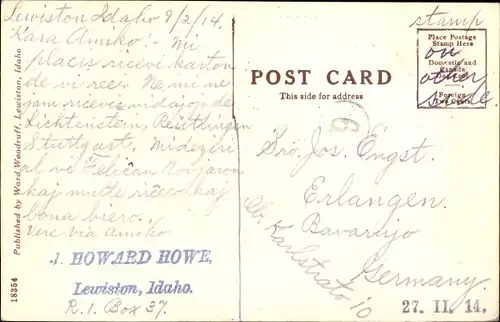 Lewiston Idaho 9/2/14.
Kara Amiko:- Mi
placis ricevi karton
de vi rec. Ne mi ne
jam ricevis vidajojn de
Lichtenstern, Reutlingen
Stuttgart. Mi deziri
al vi Felican Novjaron
kaj multe riĉeco kaj
bona biero.
Vere via Amiko
J. HOWARD HOWE,
Lewiston, Idaho.
R.1. Box 37.
18354 Published by Ward Woodruff, Lewiston, Idaho
POST CARD
This side for address
stamp
on
other
side
Place Postage
Stamp Here
Domestic and
Canada
Foreign
6
Sro, Jos. Engst.
Erlangen.
Ob. Karlstrato 10
Bavarujo
Germany.
27. II. 14.